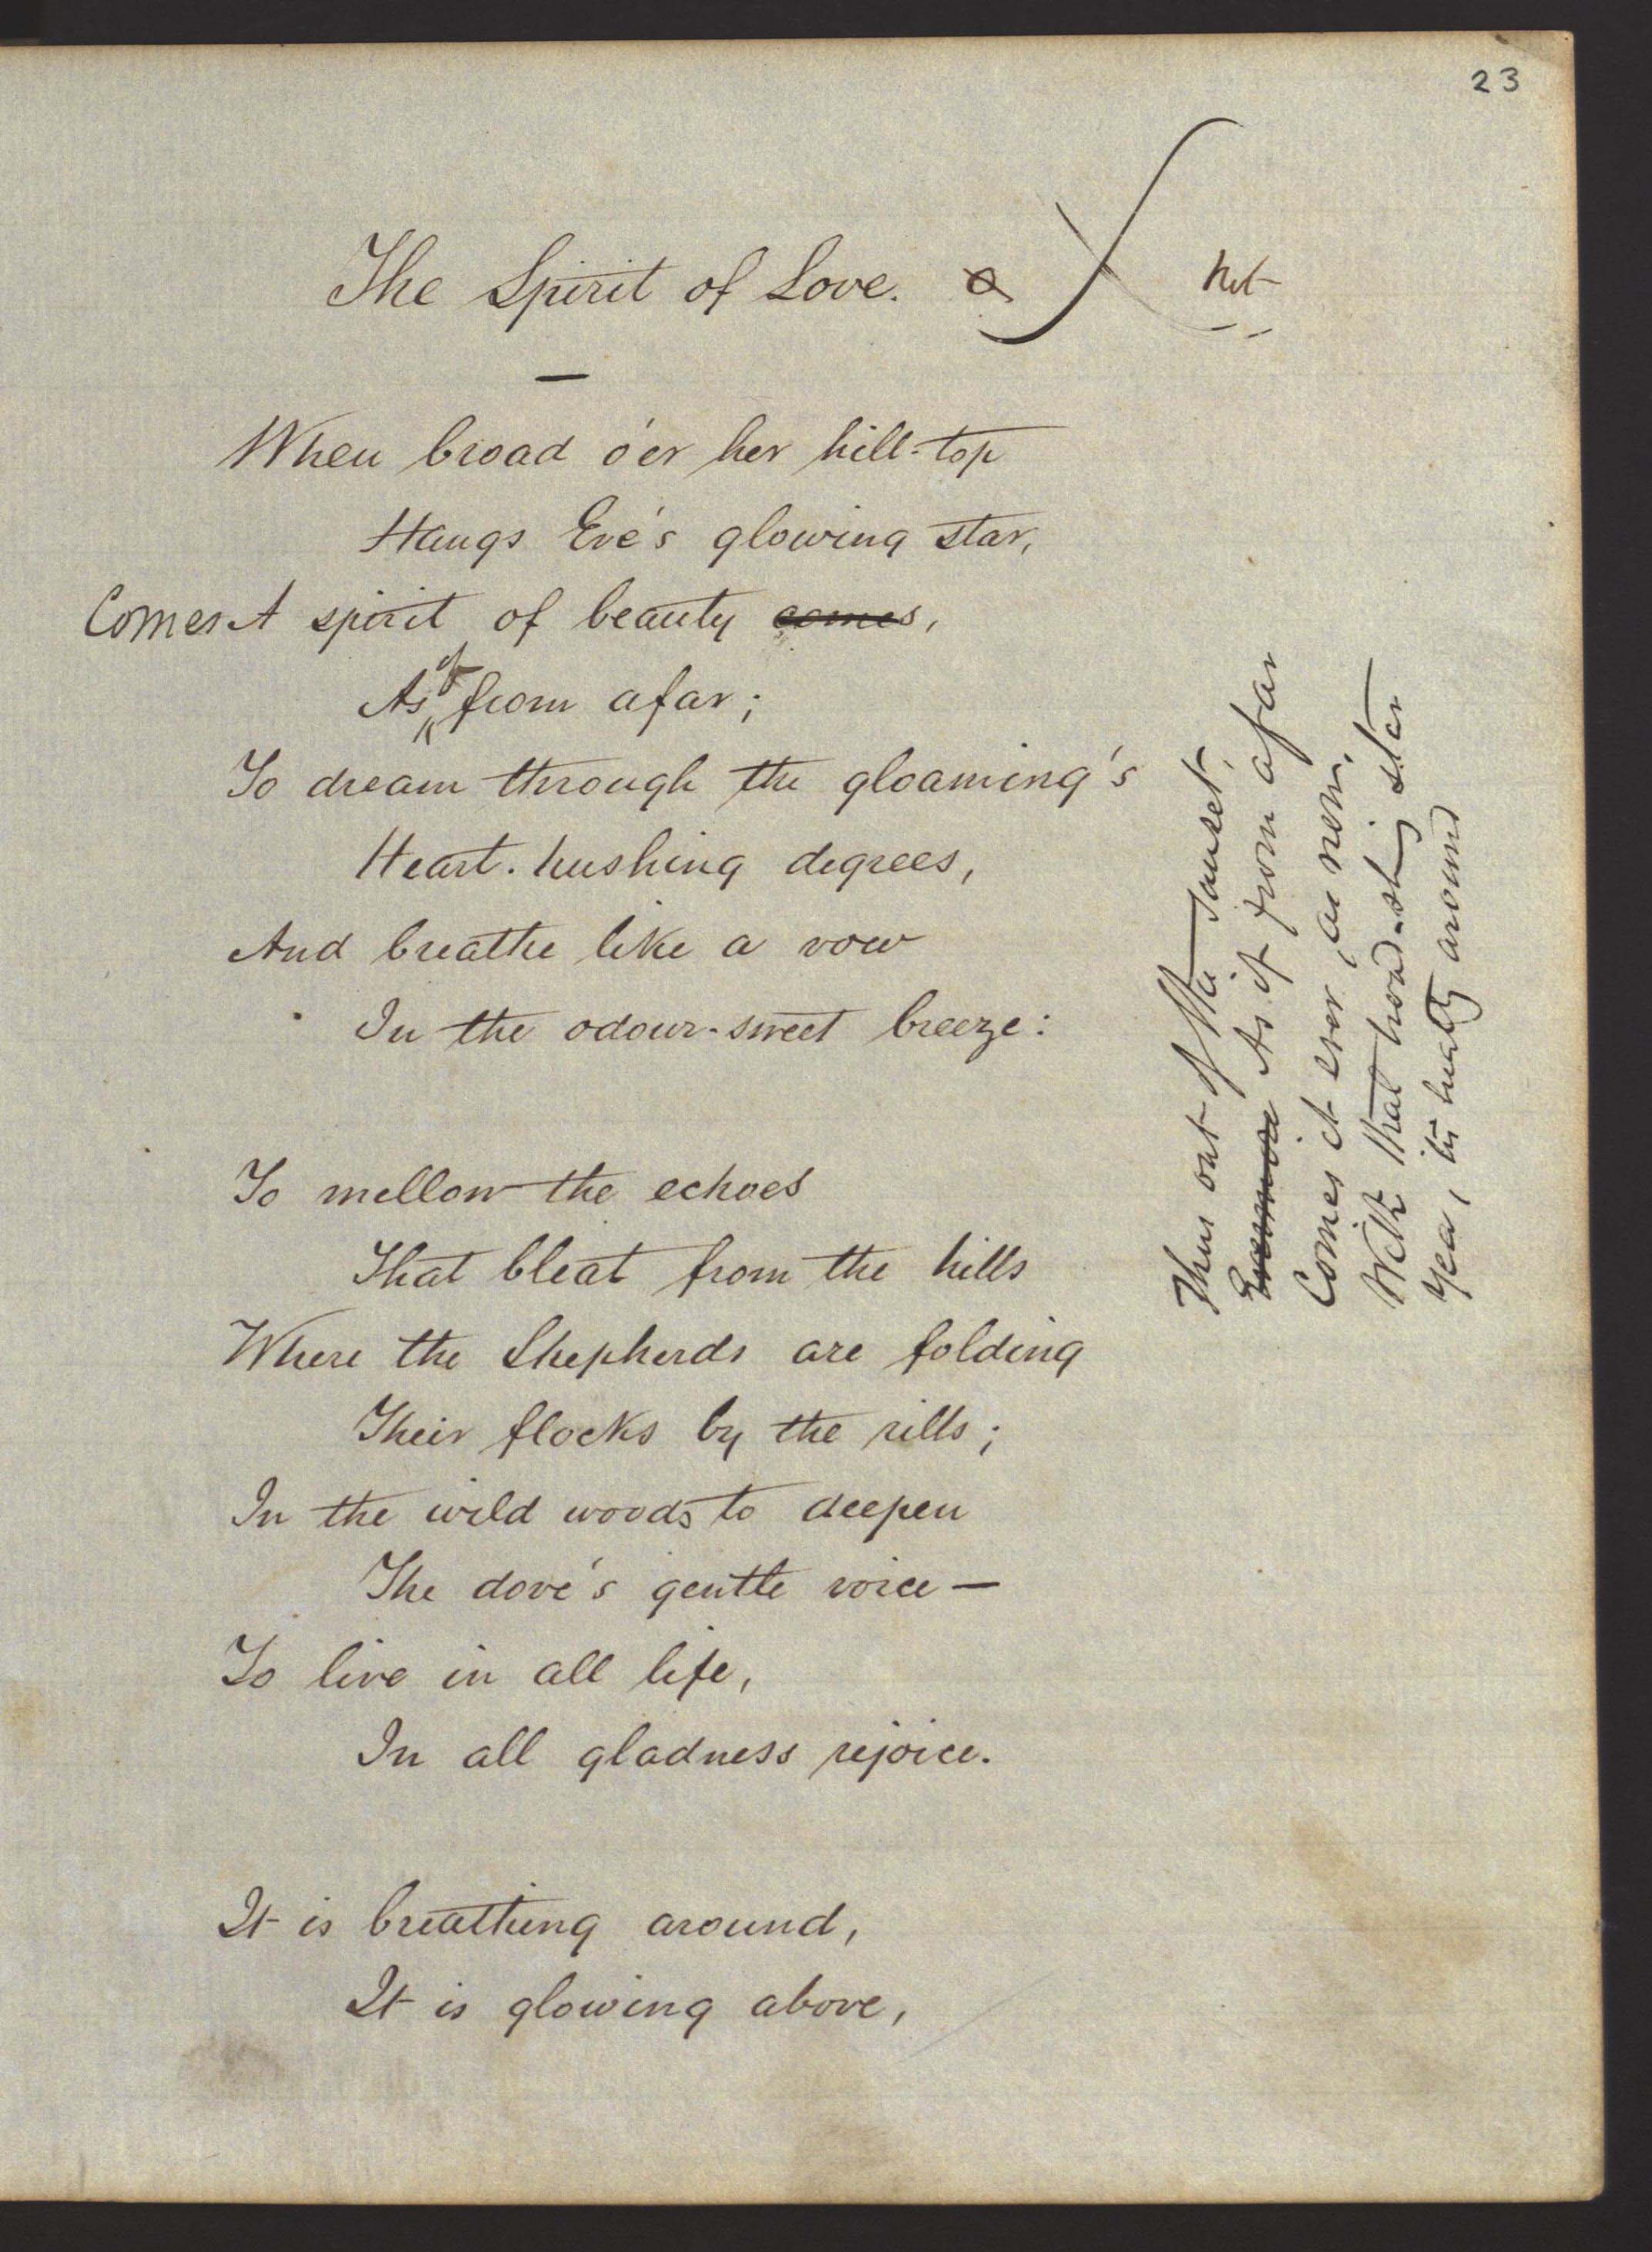 23
The Spirit of Love.
Not
When broad o'er her hill-top
Hangs Eve's glowing star,
Comes A spirit of beauty comes,
As if from afar;
To dream through the gloaming's
Heart-hushing degrees,
And breathe like a vow
In the odour-sweet breeze:
To mellow the echoes
That bleat from the hills
Where the Shepherds are folding
Their flocks by the rills;
In the wild woods to deepen
The dove's gentle voice —
To live in all life,
In all gladness rejoice.
It is breathing around,
It is glowing above,
Thus out of the sunset,
As if from afar
Comes it ever, as now,
With that broad-shining star
Yea, its beauty around